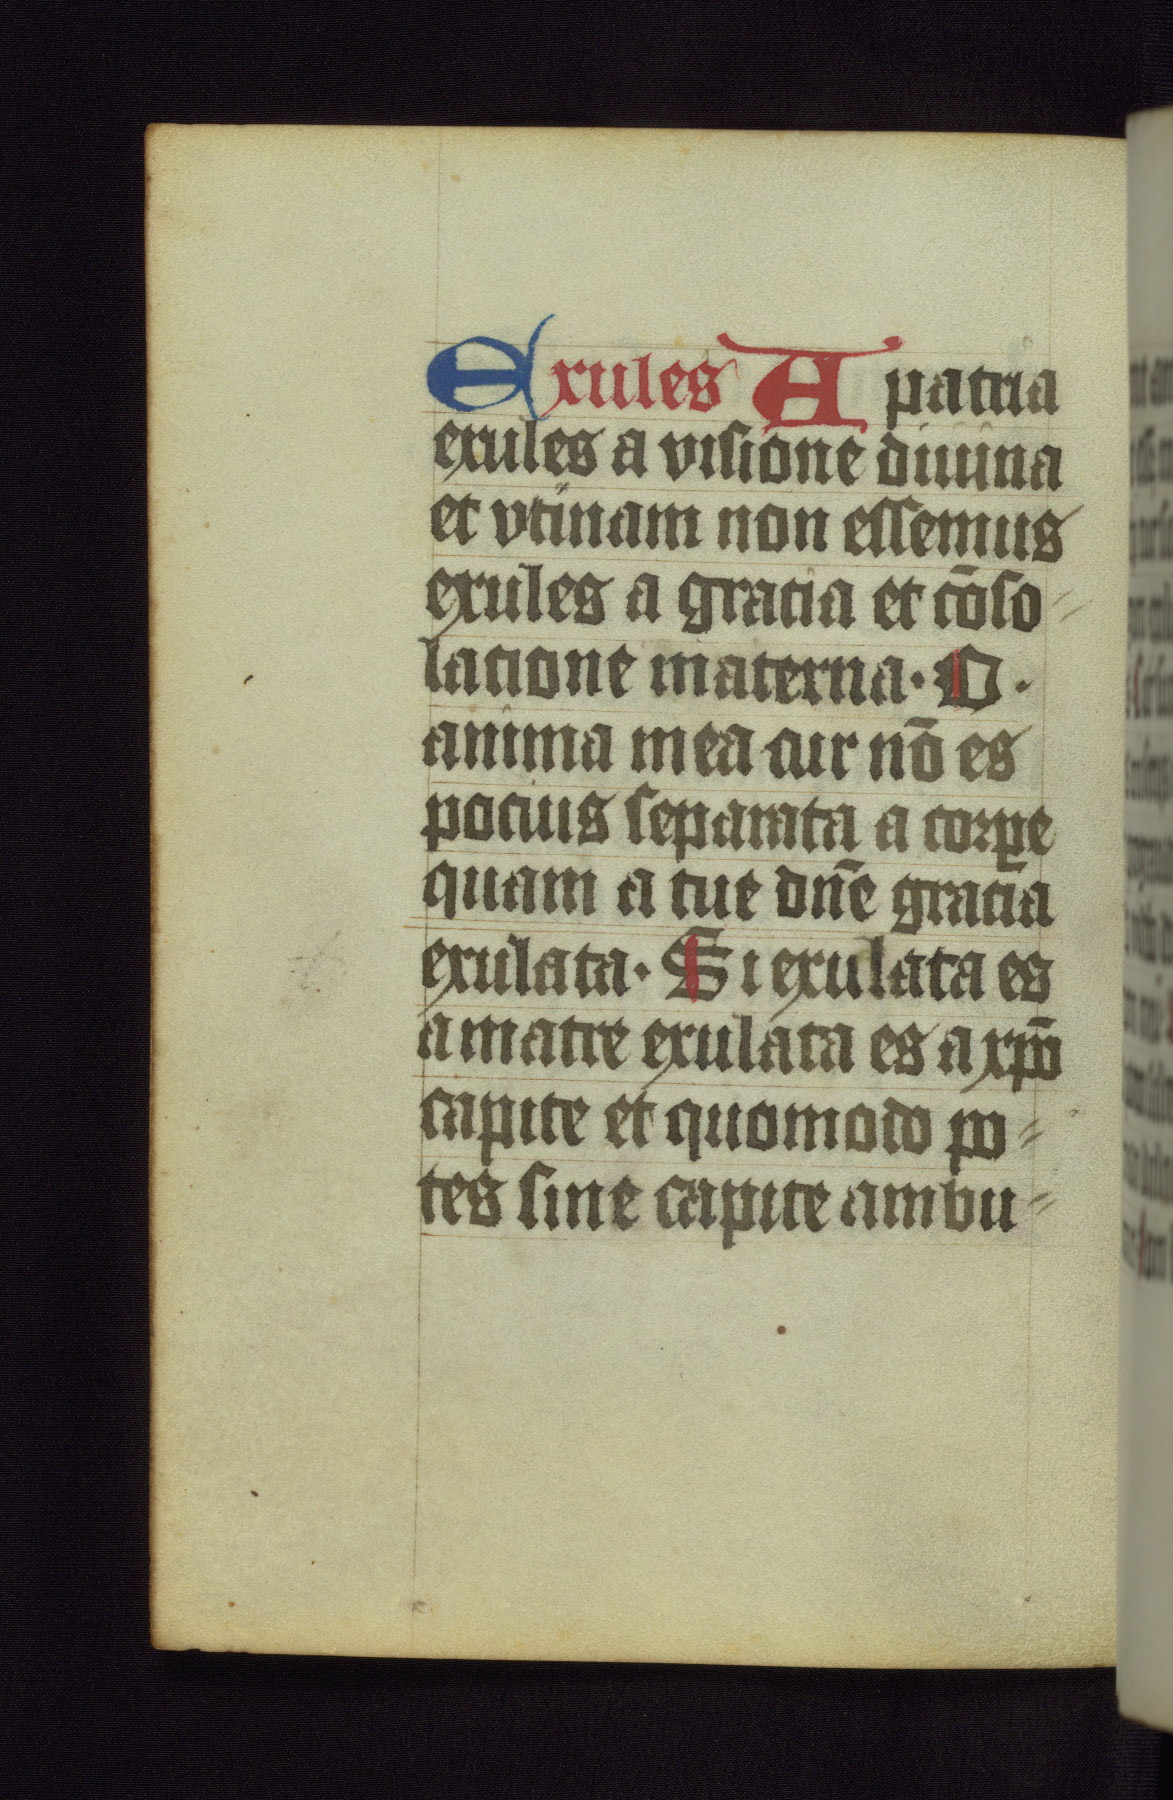 Exules A patria
exules a visione diuina
et vtinam non essemus
exules a gracia et cōso
lacione materna. O.
anima mea cur nō es
pocius separata a corꝑe
quam a tue dn̄e gracia
exulata. Si exulata es
a matre exulata es a xp̄o
capite et quomodo po
tes sine capite ambu